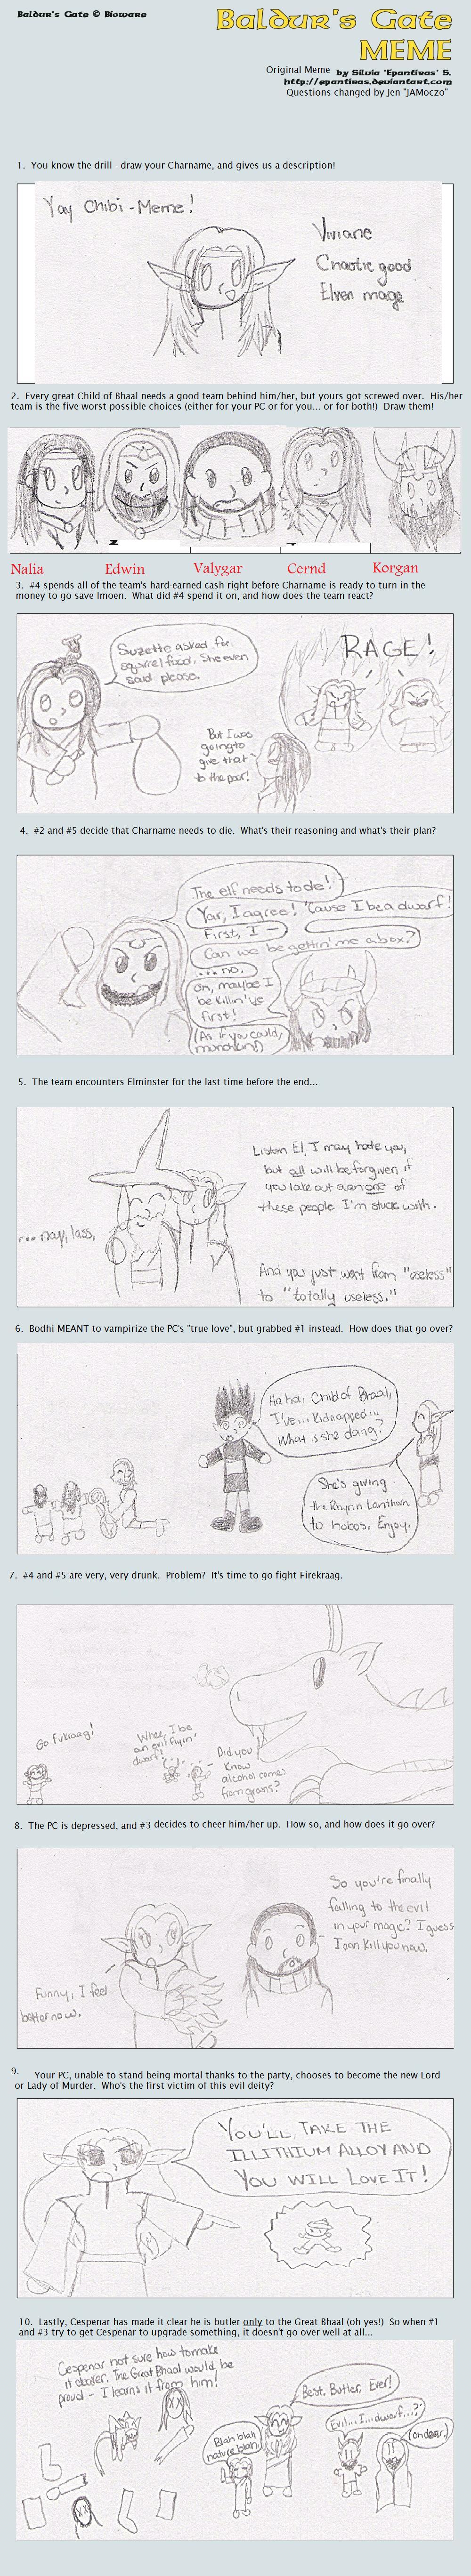 Baldur's Gate © Bioware
Baldur's Gate
MEME
Original Meme by Silvia 'Epantiras' S.
http://epantiras.deviantart.com
Questions changed by Jen "JAMoczo"
1. You know the drill - draw your Charname, and gives us a description!
Yay Chibi-Meme!
Viviane
Chaotic good
Elven mage
2. Every great Child of Bhaal needs a good team behind him/her, but yours got screwed over. His/her
team is the five worst possible choices (either for your PC or for you... or for both!) Draw them!
Nalia
Edwin
Valygar
Cernd
Korgan
3. #4 spends all of the team's hard-earned cash right before Charname is ready to turn in the
money to go save Imoen. What did #4 spend it on, and how does the team react?
Suzette asked for
squirrel food. She even
said please.
RAGE!
But I was
going to
give that
to the poor!
4. #2 and #5 decide that Charname needs to die. What's their reasoning and what's their plan?
The elf needs to die!
Yar, I agree! 'Cause I be a dwarf!
First, I -
Can we be gettin' me a box?
...no.
Oh, maybe I
be killin' ye
first!
(As if you could,
munchkin!)
5. The team encounters Elminster for the last time before the end...
Listen El, I may hate you,
but all will be forgiven if
you take out even one of
these people I'm stuck with.
... nay, lass.
And you just went from "useless"
to "totally useless."
6. Bodhi MEANT to vampirize the PC's "true love", but grabbed #1 instead. How does that go over?
Ha ha, Child of Bhaal,
I've... kidnapped...
What is she doing?
She's giving
the Rhynn Lanthorn
to hobos. Enjoy.
7. #4 and #5 are very, very drunk. Problem? It's time to go fight Firekraag.
Go Firkraag!
Whee, I be
an evil flyin'
dwarf!
Did you
know
alcohol comes
from grains?
8. The PC is depressed, and #3 decides to cheer him/her up. How so, and how does it go over?
So you're finally
falling to the evil
in your magic? I guess
I can kill you now.
Funny, I feel
better now.
9. Your PC, unable to stand being mortal thanks to the party, chooses to become the new Lord
or Lady of Murder. Who's the first victim of this evil deity?
You'll take the
Illithium alloy and
you will love it!
10. Lastly, Cespenar has made it clear he is butler only to the Great Bhaal (oh yes!) So when #1
and #3 try to get Cespenar to upgrade something, it doesn't go over well at all...
Cespenar not sure how to make
it clearer. The Great Bhaal would be
proud - I learns it from him!
Best. Butler. Ever!
Blah blah
nature blah.
Evil... I... dwarf...?
(oh dear.)